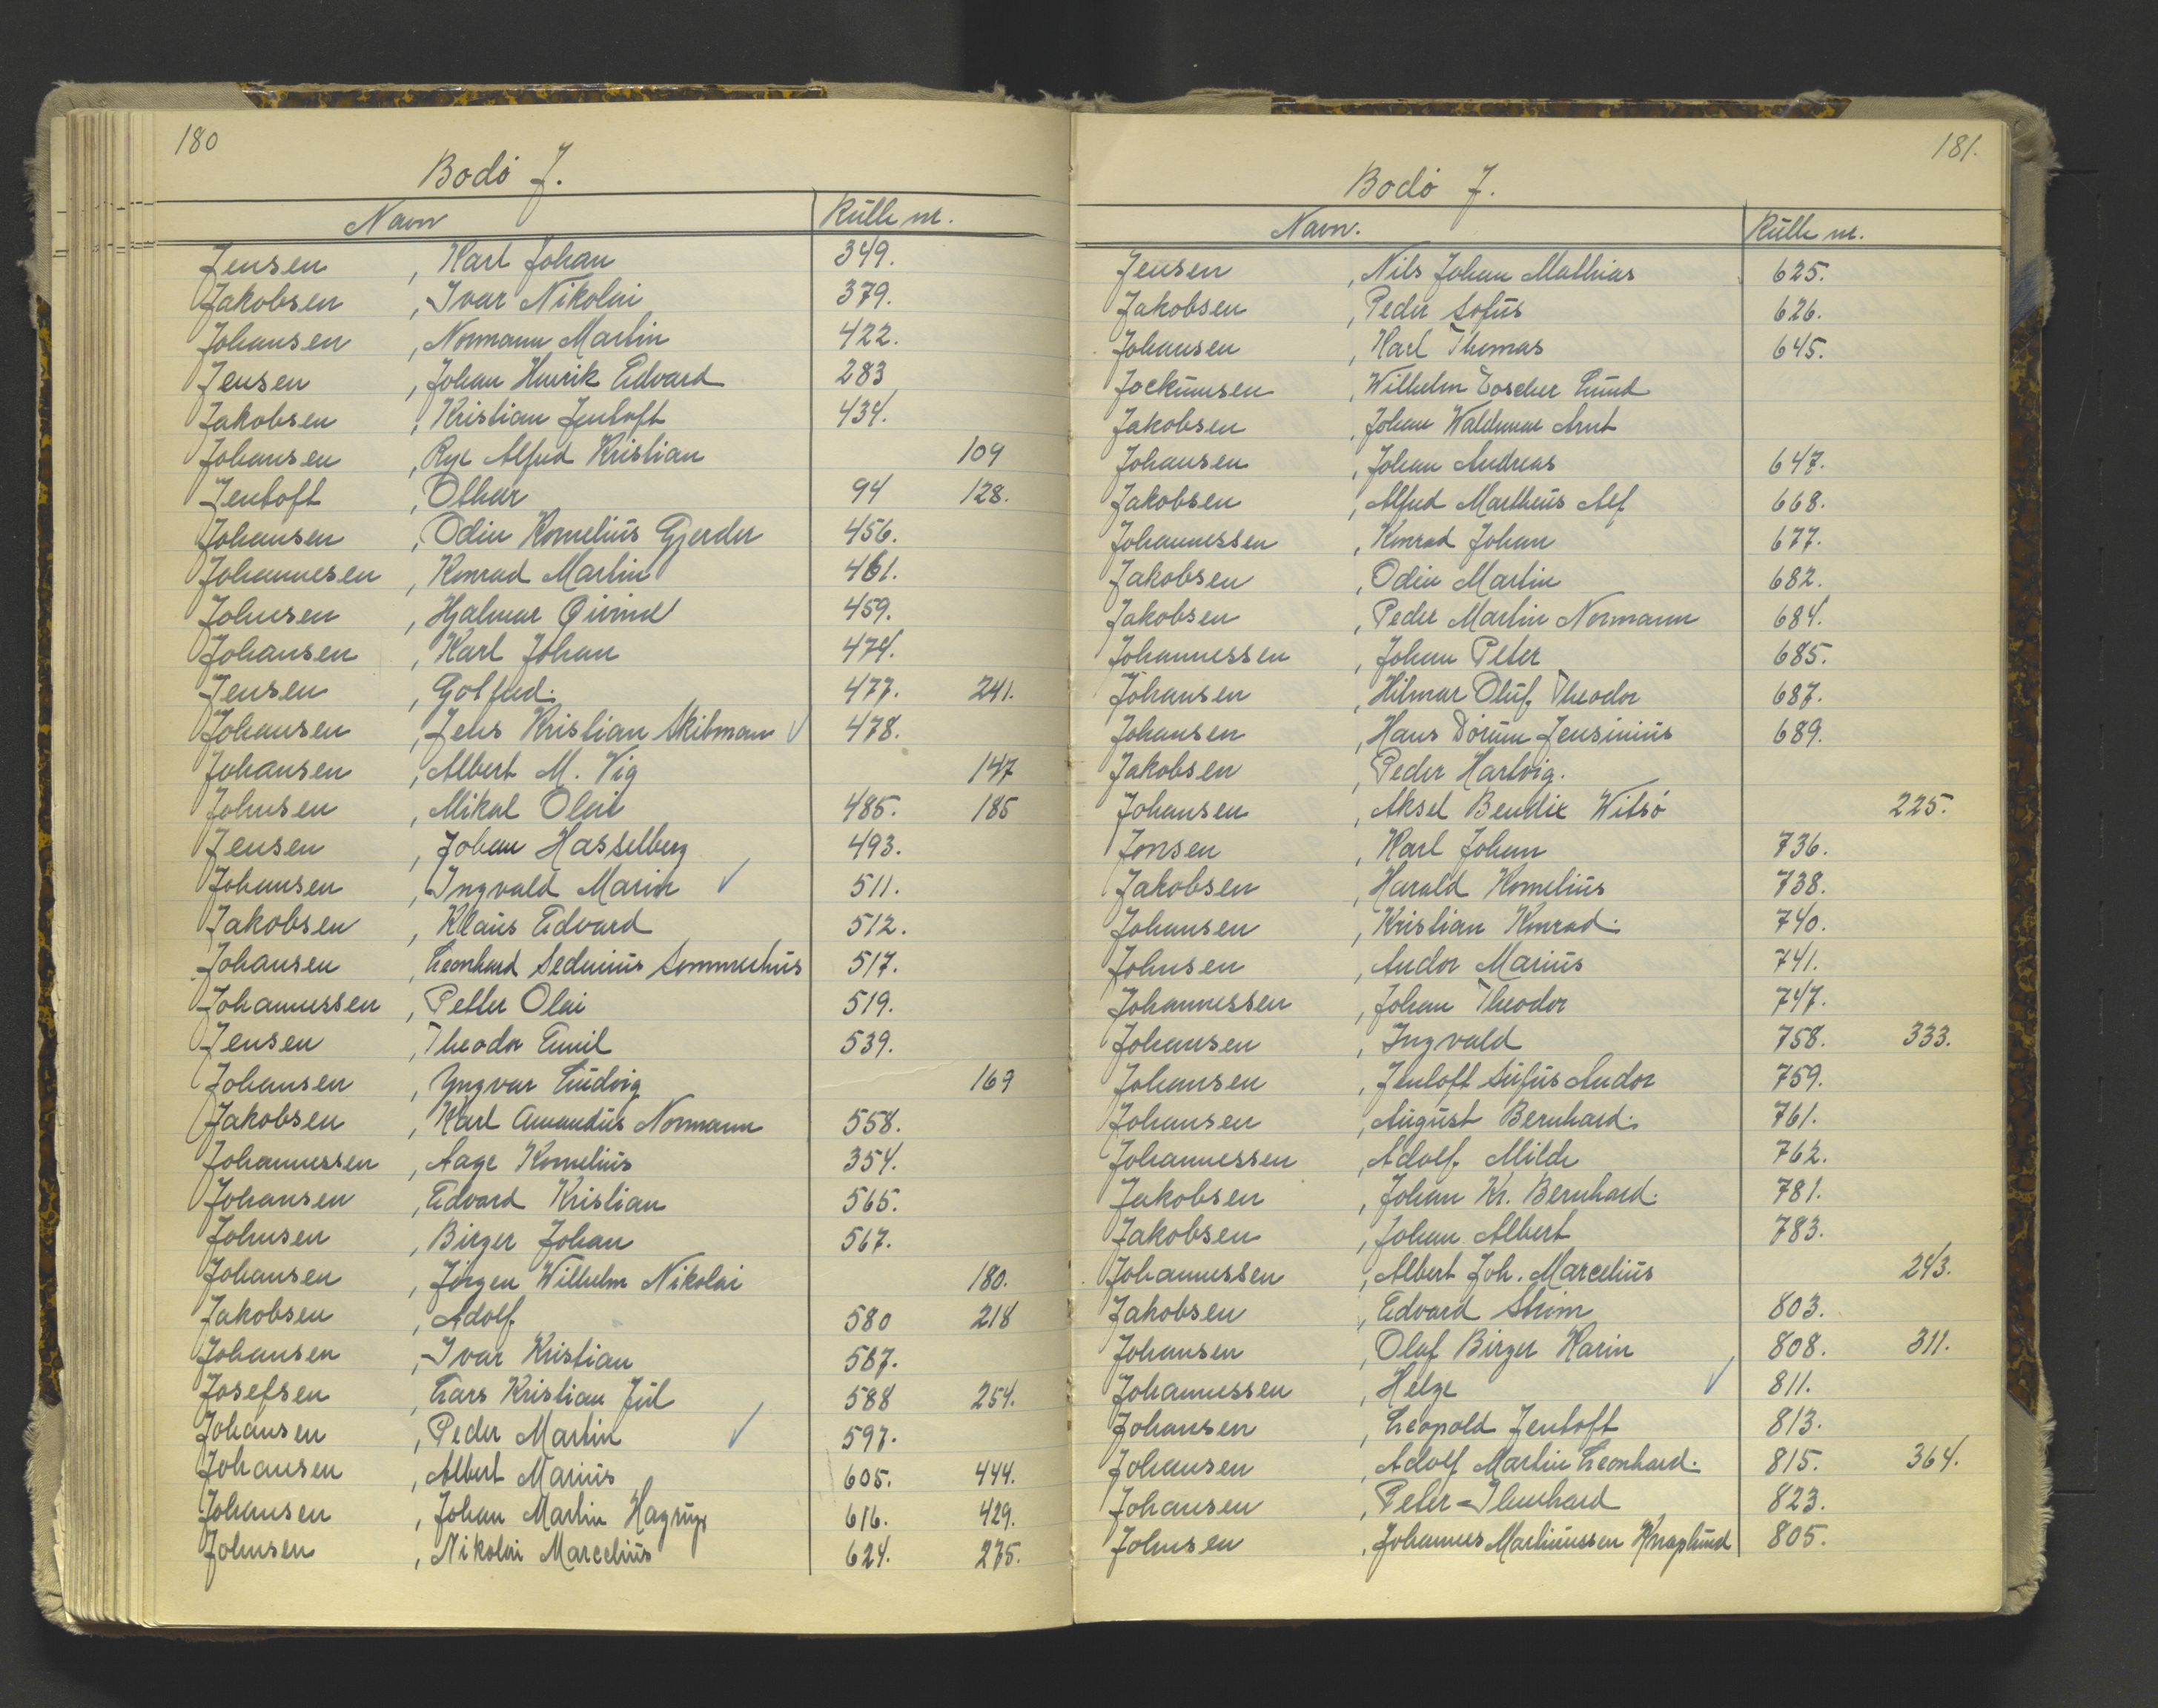 180
Bodö J.
Navn Rulle nr.
Jensen , Karl Johan 349.
Jakobsen , Ivar Nikolai 379.
Johansen , Normann Martin 422.
Jensen , Johan Henrik Edvard 283
Jakobsen , Kristian Jentoft 434.
Johansen , Rye Alfred Kristian 109
Jentoft , Othar 94 128.
Johansen , Odin Kornelius Gjerder 456.
Johannesen , Konrad Martin 461.
Johnsen , Hjalmar 459.
Johansen , Karl Johan 474.
Jensen , Gotfred. 477. 241.
Johansen , Jens Kristian Skibmann ✓ 478.
Johansen , Albert M. Vig 147
Johnsen , Mikal Olai 485. 185
Jensen , Johan Hasselberg 493.
Johansen , Ingvald Marin ✓ 511.
Jakobsen , Klaus Edvard 512.
Johansen , Leonhard Sedenius Sommerhus 517.
Johannessen , Petter Olai 519.
Jensen , Theodor Emil 539.
Johansen , Yngvar Ludvig 167
Jakobsen , Karl Amandus Normann 558.
Johannessen , Aage Kornelius 354.
Johansen , Edvard Kristian 565.
Johnsen , Birger Johan 567.
Johansen , Jörgen Wilhelm Nikolai 180.
Jakobsen , Adolf 580 218
Johansen , Ivar Kristian 587.
Josefsen , Lars Kristian Jul 588 254.
Johansen , Peder Martin ✓ 597.
Johansen , Albert Marius 605. 444.
Johansen , Johan Martin Hagrup 616. 429.
Johnsen , Nikolai Marcelius 624. 275.
181.
Bodö J.
Navn. Rulle nr.
Jensen , Nils Johan Mathias 625.
Jakobsen , Peder Sofus 626.
Johansen , Karl Thomas 645.
Jockumsen , Wilhelm Lund
Jakobsen , Johan Waldemar Arnt
Johansen , Johan Andreas 647.
Jakobsen , Alfred Martheus Alf 668.
Johannessen , Konrad Johan 677.
Jakobsen , Odin Martin 682.
Jakobsen , Peder Martin Normann 684.
Johannessen , Johan Peter 685.
Johansen , Hilmar Oluf Theodor 687.
Johansen , Hans Dörum Jensinius 689.
Jakobsen , Peder Hartvig.
Johansen , Aksel Bendix Witsö 225.
Jonsen , Karl Johan 736.
Jakobsen , Harald Kornelius 738.
Johansen , Kristian Konrad. 740.
Johnsen , Andor Marius 741.
Johannessen , Johan Theodor 747.
Johansen , Ingvald 758. 333.
Johansen , Jentoft Sufus Andor 759.
Johansen , August Bernhard. 761.
Johannessen , Adolf Milde 762.
Jakobsen , Johan Kr. Bernhard. 781.
Jakobsen , Johan Albert 783.
Johannessen , Albert Joh. Marcelius 243.
Jakobsen , Edvard Ström 803.
Johansen , Oluf Birger Karin 808. 311.
Johannessen , Helge ✓ 811.
Johansen , Leopold Jentoft 813.
Johansen , Adolf Martin Leonhard. 815. 364.
Johansen , Peter 823.
Johnsen , Johannes Martinussen Knaplund 805.